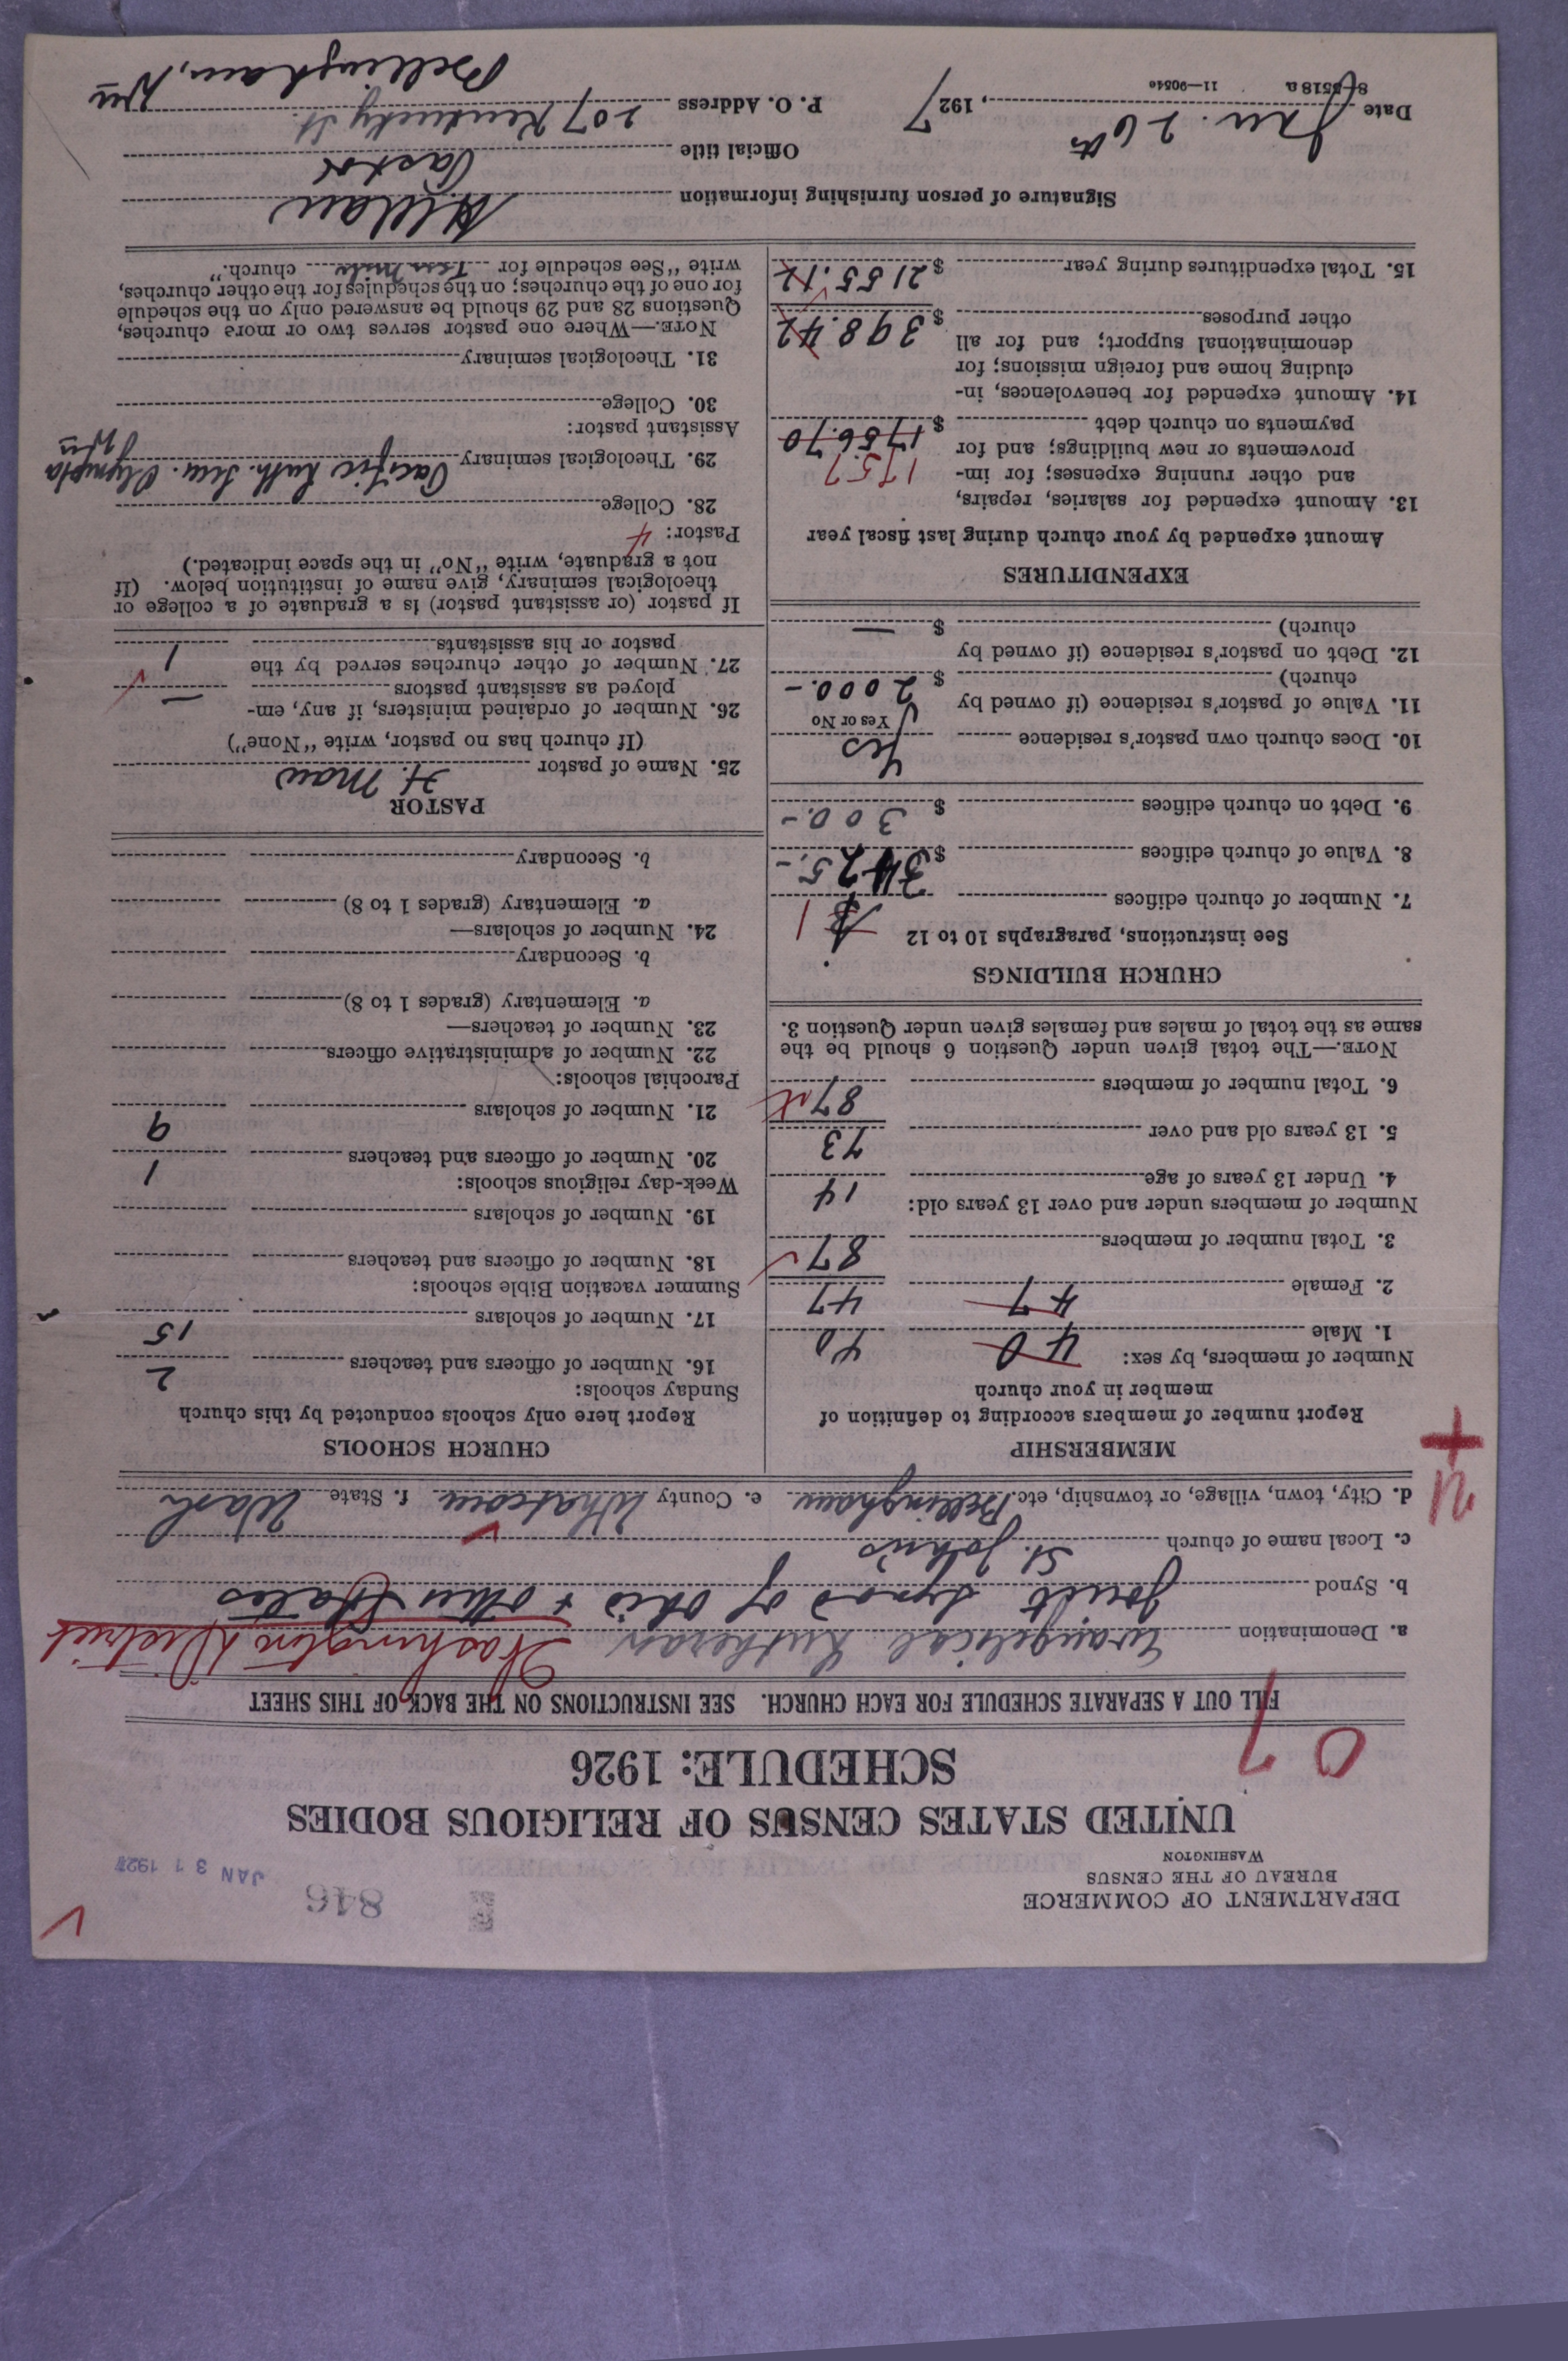 DEPARTMENT OF COMMERCE
BUREAU OF THE CENSUS
WASHINGTON
846
JAN 31 1927
UNITED STATES CENSUS OF RELIGIOUS BODIES
SCHEDULE: 1926
07
FILL OUT A SEPARATE SCHEDULE FOR EACH CHURCH. SEE INSTRUCTIONS ON THE BACK OF THIS SHEET
a. Denomination Evangelical Lutheran Washington District
b. Synod Joint Synod of Ohio + Other States
c. Local name of church St. John's
d. City, town, village, or township, etc. Bellingham e. County Whatcom f. State Wash
MEMBERSHIP
Report number of members according to definition of
member in your church
Number of members, by sex:
1. Male 40 40
2. Female 47 47
3. Total number of members 87
Number of members under and over 13 years old:
4. Under 13 years of age 14
5. 13 years old and over 73
6. Total number of members 87
NOTE.—The total given under Question 6 should be the
same as the total of males and females given under Question 3.
CHURCH BUILDINGS
See instructions, paragraphs 10 to 12
7. Number of church edifices 1
8. Value of church edifices $ 3425.-
9. Debt on church edifices $ 300.-
10. Does church own pastor's residence Yes
Yes or No
11. Value of pastor's residence (if owned by
church) $ 2000.-
12. Debt on pastor's residence (if owned by
church) $ —
EXPENDITURES
Amount expended by your church during last fiscal year
13. Amount expended for salaries, repairs,
and other running expenses; for im-
provements or new buildings; and for
payments on church debt $ 1756.70
1757
14. Amount expended for benevolences, in-
cluding home and foreign missions; for
denominational support; and for all
other purposes $ 398.42
15. Total expenditures during year $ 2155.12
CHURCH SCHOOLS
Report here only schools conducted by this church
Sunday schools:
16. Number of officers and teachers 2
17. Number of scholars 15
Summer vacation Bible schools:
18. Number of officers and teachers
19. Number of scholars
Week-day religious schools:
20. Number of officers and teachers 1
21. Number of scholars 9
Parochial schools:
22. Number of administrative officers
23. Number of teachers—
a. Elementary (grades 1 to 8)
b. Secondary
24. Number of scholars—
a. Elementary (grades 1 to 8)
b. Secondary
PASTOR
25. Name of pastor H. Mau
(If church has no pastor, write "None")
26. Number of ordained ministers, if any, em-
ployed as assistant pastors —
27. Number of other churches served by the
pastor or his assistants 1
If pastor (or assistant pastor) is a graduate of a college or
theological seminary, give name of institution below. (If
not a graduate, write "No" in the space indicated.)
Pastor: 4
28. College
29. Theological seminary Pacific Luth. Sem. Olympia
Assistant pastor:
30. College
31. Theological seminary
NOTE.—Where one pastor serves two or more churches,
Questions 28 and 29 should be answered only on the schedule
for one of the churches; on the schedules for the other churches,
write "See schedule for Ten Mile church."
Signature of person furnishing information H. Mau
Official title Pastor
Date Jan. 26th, 1927 P. O. Address 207 Kentucky St.
Bellingham, Wn
8-5518 a 11—9054e